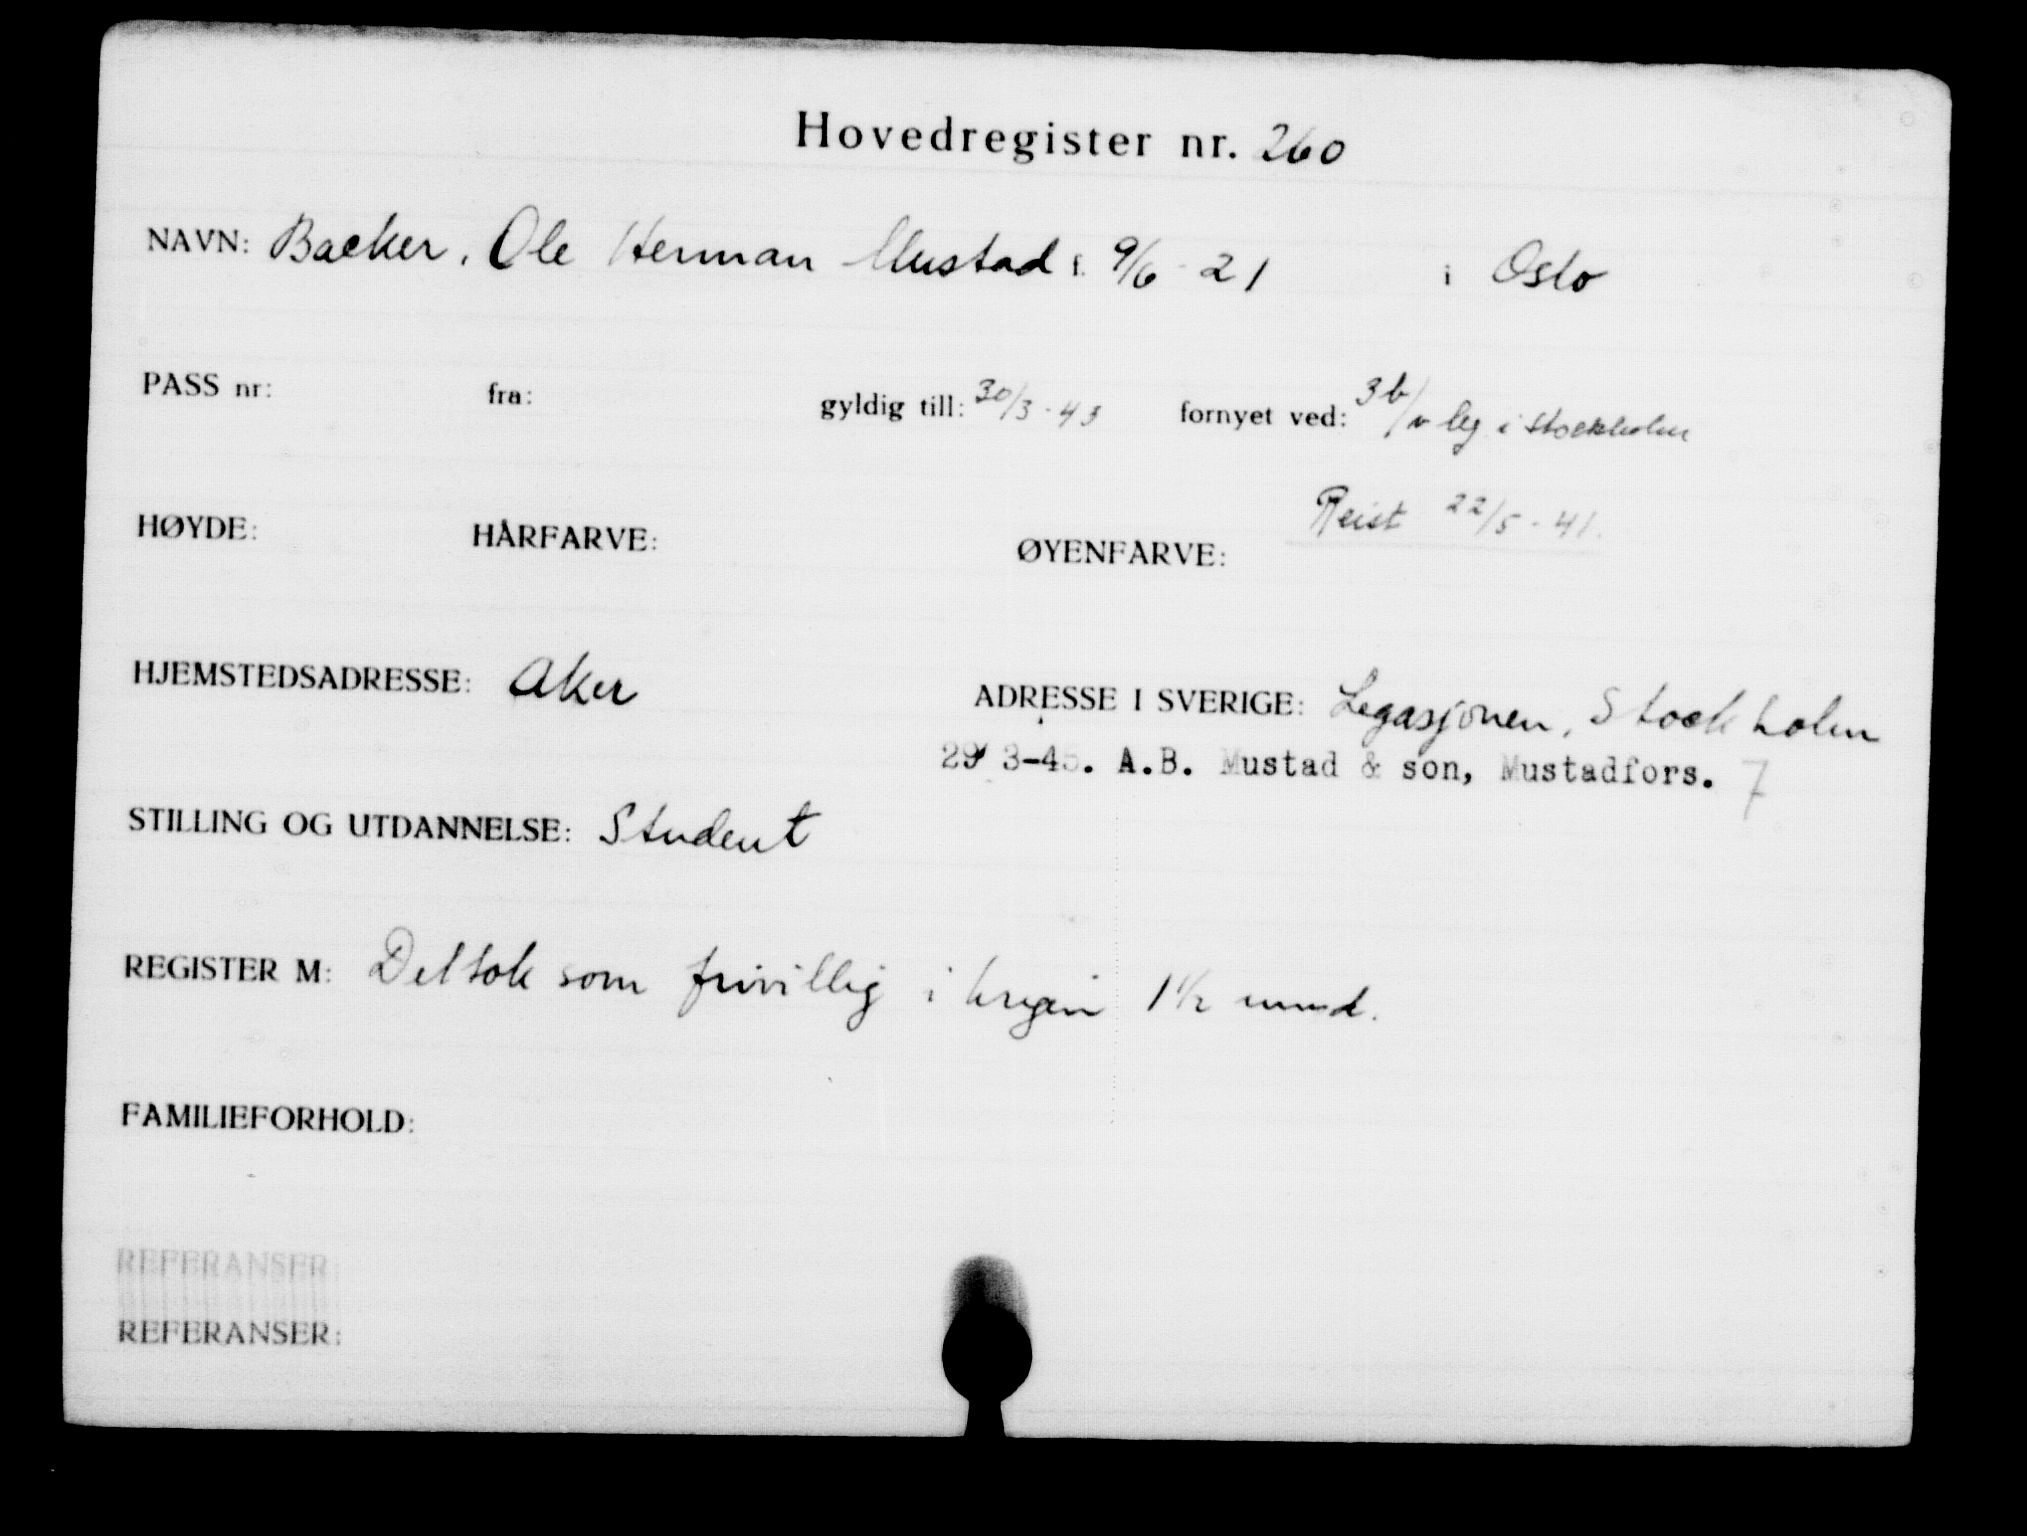 Hovedregister nr. 260
NAVN: Backer, Ole Herman Mustad f. 9/6 - 21 i Oslo
PASS nr: fra: gyldig till: 30/3 - 43 fornyet ved: leg. i Stockholm
Reist 22/5 - 41.
HØYDE: HÅRFARVE: ØYENFARVE:
HJEMSTEDSADRESSE: Aker ADRESSE I SVERIGE: Legasjonen, Stockholm
29 3-45. A.B. Mustad & son, Mustadfors. 7
STILLING OG UTDANNELSE: Student
REGISTER M: Deltok som frivillig i krigen 1 1/2 mnd.
FAMILIEFORHOLD:
REFERANSER:
REFERANSER: